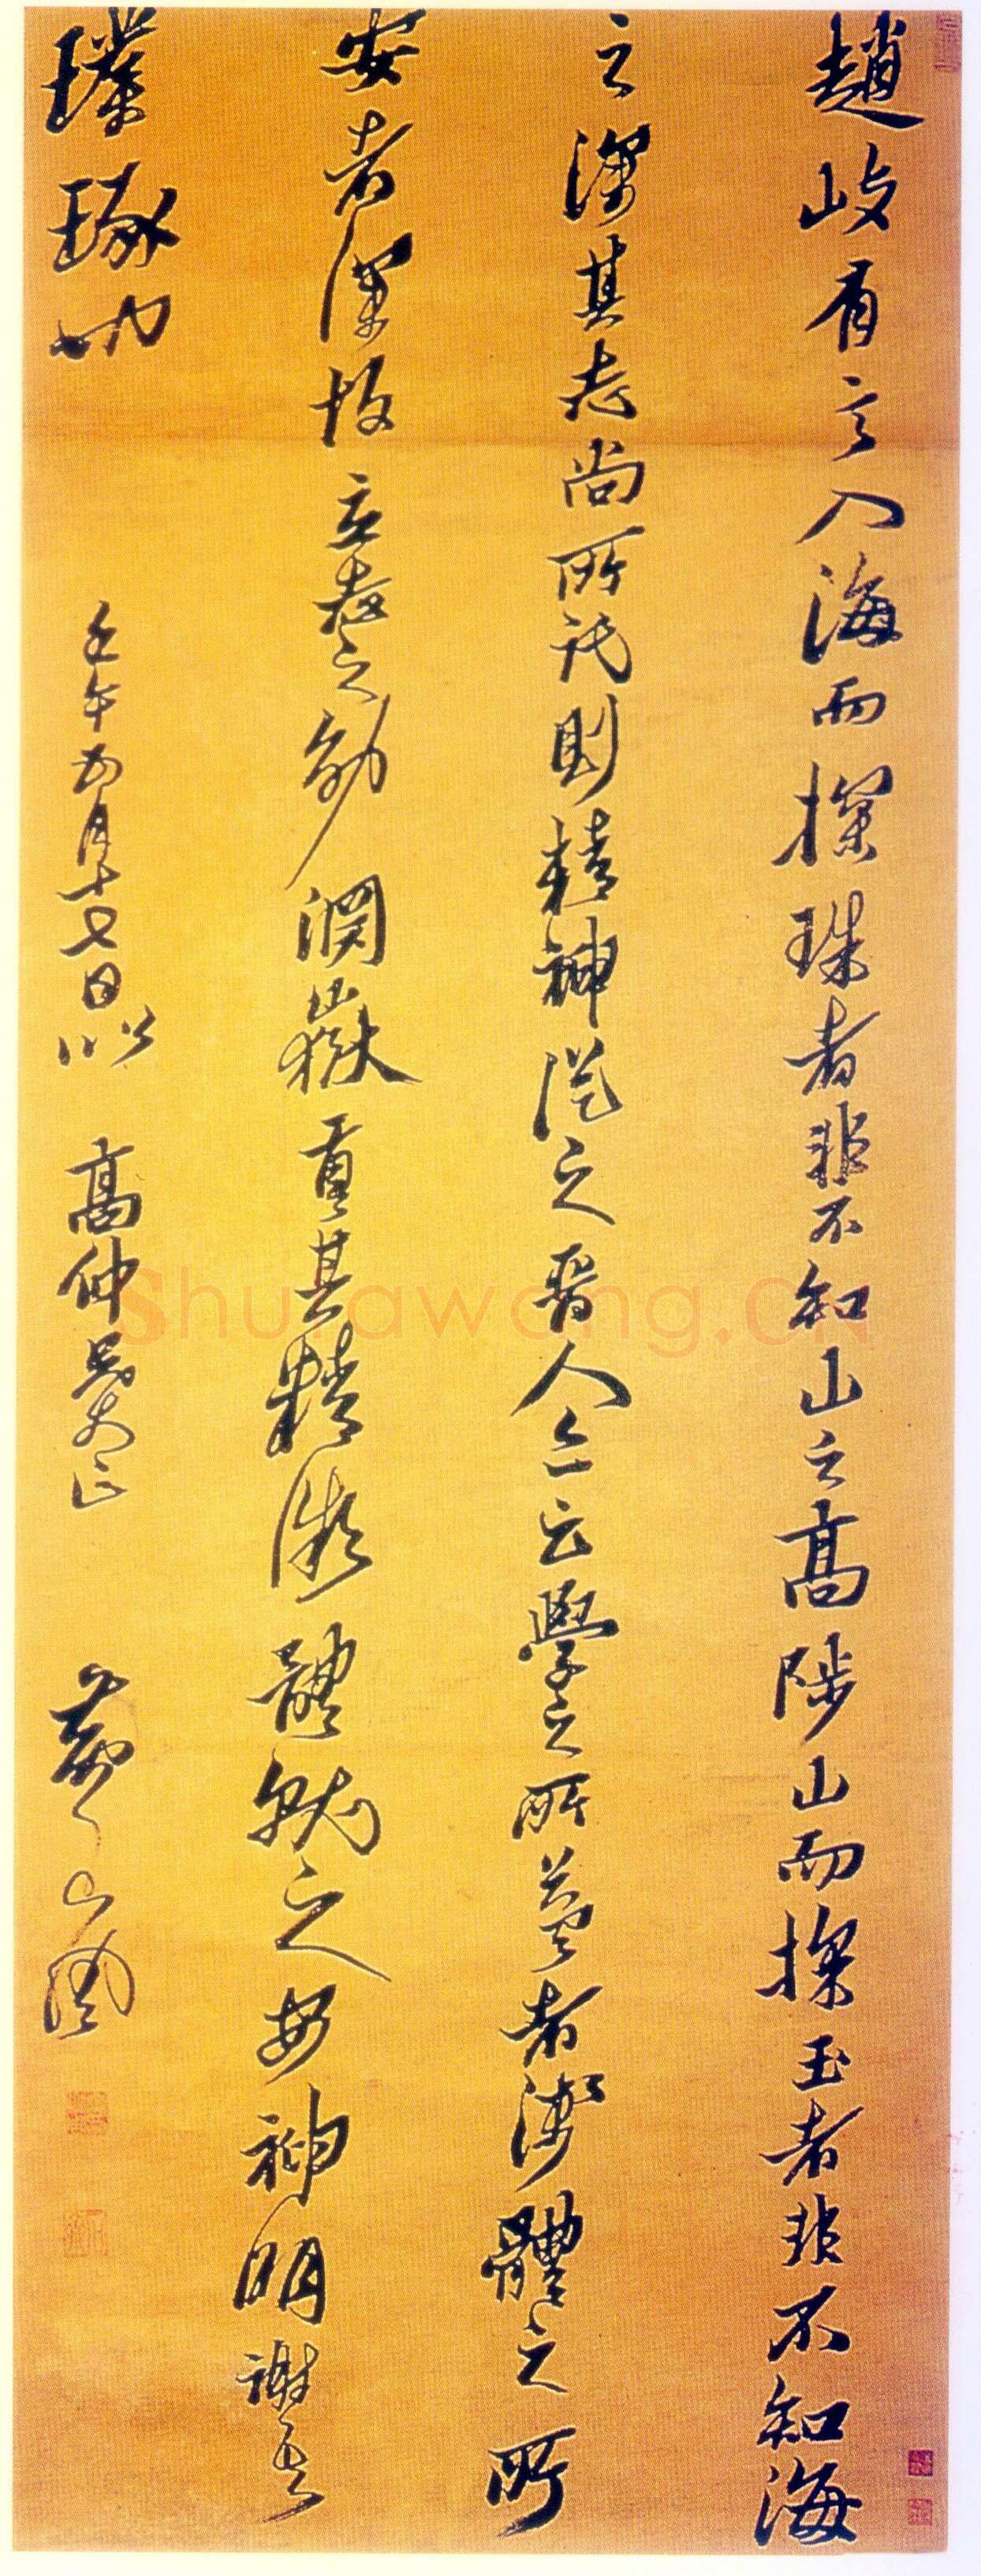 趙岐有言入海而探珠者非不知山之高陟山而探玉者非不知海
之深其志尚所託則精神從之晋人亦云學之所益者淺體之所
安者深故立志之幼潤嶽重其精微體貌之安神明謝吾
璞琢功
壬午五月十七日以 高仲兄大正
黃山
Shufawang.CN